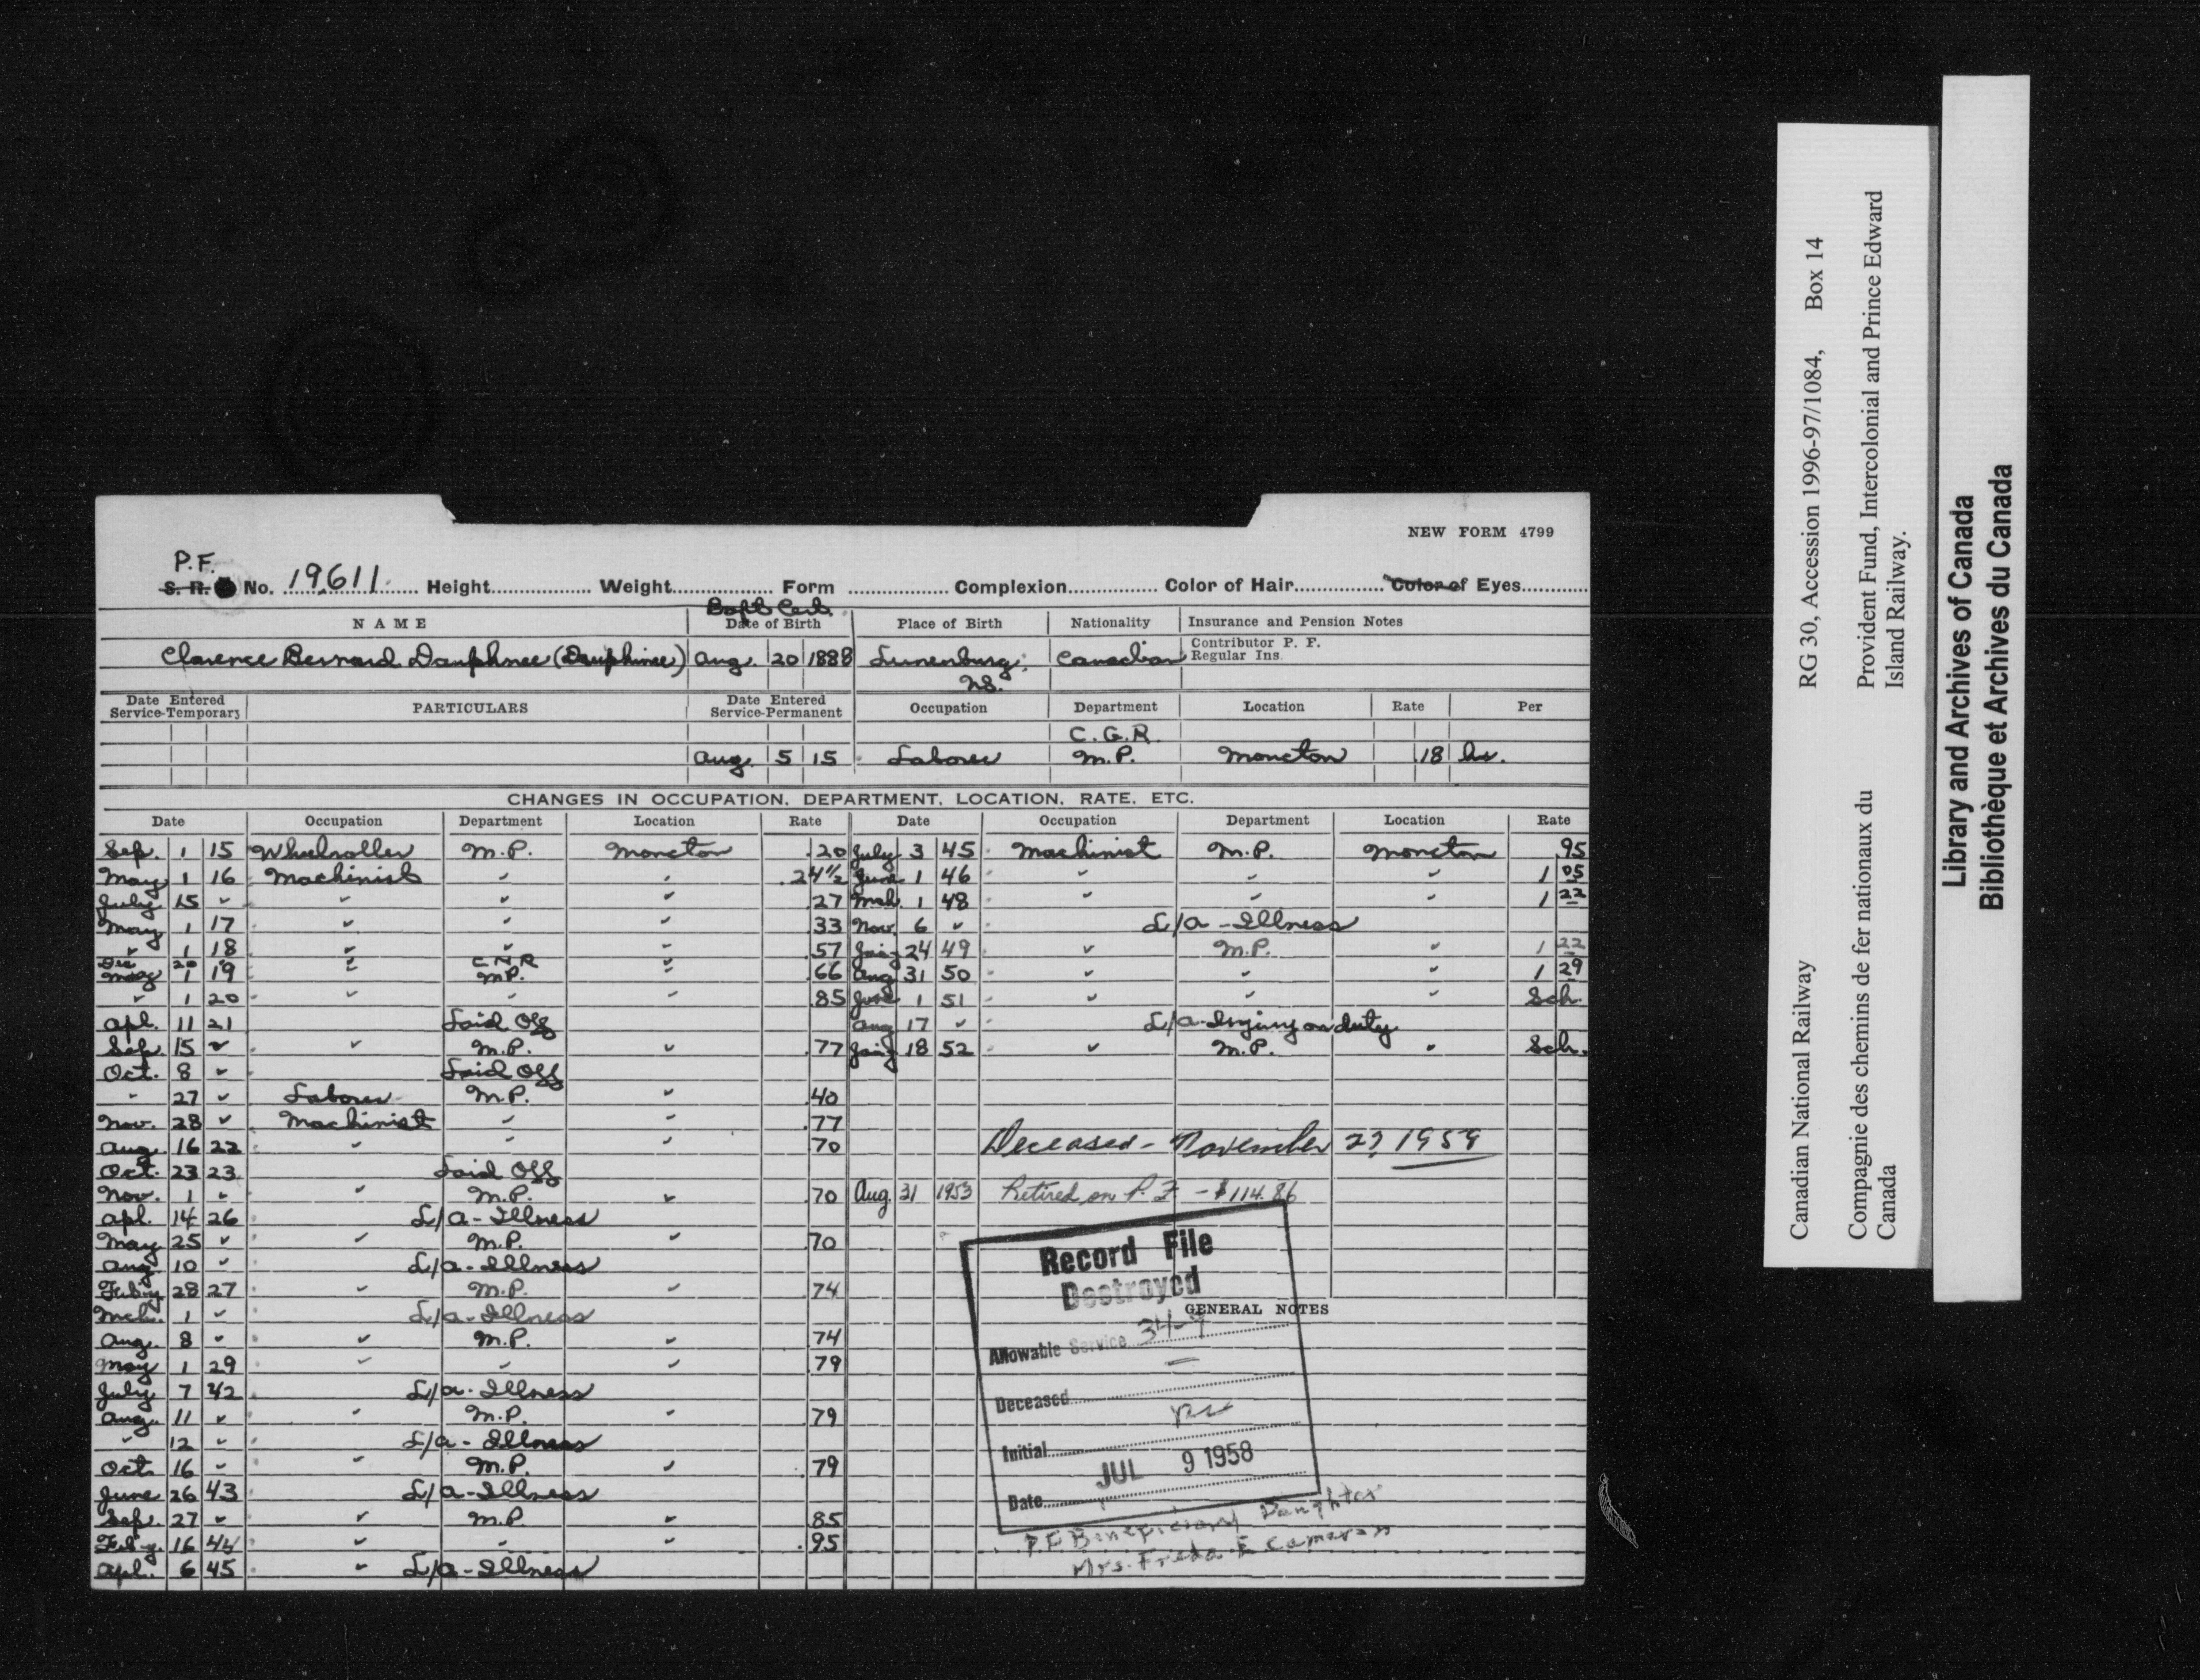 NEW FORM 4799
P.F.
S. R. No. 19611 Height Weight Form Complexion Color of Hair Color of Eyes
Bapt. Cert.
NAME Date of Birth Place of Birth Nationality Insurance and Pension Notes
Contributor P. F.
Clarence Bernard Dauphnee (Dauphinee) Aug. 20 1888 Lunenburg, Canadian Regular Ins.
N.S.
Date Entered Service-Temporary PARTICULARS Date Entered Service-Permanent Occupation Department Location Rate Per
C.G.R.
Aug. 5 15 Laborer M.P. Moncton 18 hr.
CHANGES IN OCCUPATION, DEPARTMENT, LOCATION, RATE, ETC.
Date Occupation Department Location Rate Date Occupation Department Location Rate
Sep. 1 15 Wheelroller M.P. Moncton .20 July 3 45 Machinist M.P. Moncton .95
May 1 16 Machinist " " .24½ June 1 46 " " " 1 05
July 15 " " " " .27 Mch. 1 48 " " " 1 22
May 1 17 " " " .33 Nov. 6 " L/a - Illness
" 1 18 " " " .57 Jan'y 24 49 " M.P. " 1 22
Dec 20 " " C N R "
May 1 19 " M.P. " .66 Aug 31 50 " " " 1 29
" 1 20 " " " .85 June 1 51 " " " Sch.
Apl. 11 21 Laid Off Aug 17 " L/a-Injury on duty
Sep. 15 " " M.P. " .77 Jan'y 18 52 " M.P. " Sch.
Oct. 8 " Laid Off
" 27 " Laborer M.P. " .40
Nov. 28 " Machinist " " .77
Aug. 16 22 " " " .70 Deceased - November 1959
Oct. 23 23 Laid Off
Nov. 1 " " M.P. " .70 Aug. 31 1953 Retired on P.F. - $114.86
Apl. 14 26 L/a - Illness
May 25 " " M.P. " .70
Aug. 10 " L/a - Illness
Feb'y 28 27 " M.P. " .74
Mch. 1 " L/a - Illness
Aug. 8 " " M.P. " .74
May 1 29 " " " .79
July 7 42 L/a - Illness
Aug. 11 " " M.P. " .79
" 12 " L/a - Illness
Oct. 16 " " M.P. " .79
June 26 43 L/a - Illness
Sep. 27 " " M.P. " .85
Feb'y. 16 44 " " " .95
Apl. 6 45 " L/a - Illness
Record File
Destroyed
GENERAL NOTES
Allowable Service 34-9
Deceased
Initial
Date JUL 9 1958
P.F Beneficiary Daughter
Mrs. Frieda E Cameron
Canadian National Railway RG 30, Accession 1996-97/1084, Box 14
Compagnie des chemins de fer nationaux du Canada
Provident Fund, Intercolonial and Prince Edward Island Railway.
Library and Archives of Canada
Bibliothèque et Archives du Canada